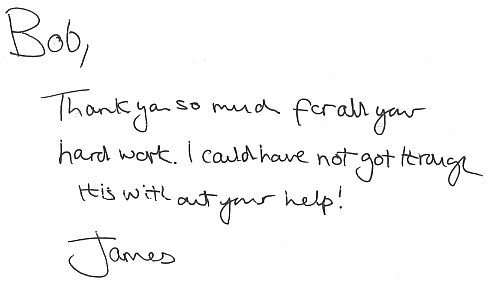 Bob,
Thank you so much for all your
hard work. I could have not got through
this without your help!
James